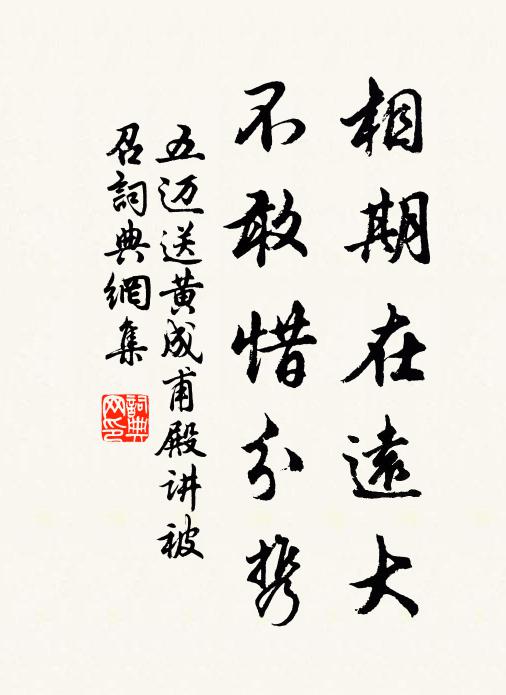 相期在遠大
不敢惜分携
五迈送黄成甫殿讲被
召詞典網集
詞典
网印